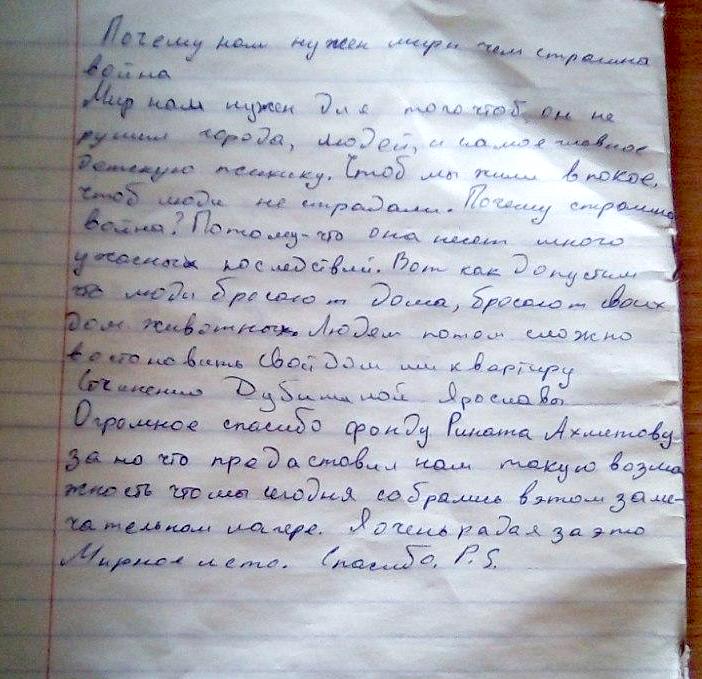 Почему нам нужен мир и чем страшна
война
Мир нам нужен для того чтоб он не
рушил города, людей, и самое главное
детскую психику. Чтоб мы жили в покое,
чтоб люди не страдали. Почему страшна
война? Потому-что она несет много
ужасных последствий. Вот как допустим
что люди бросают дома, бросают своих
дом животных. Людям потом сложно
востоновить свой дом или квартиру
Сочинение Дубининой Ярославы
Огромное спасибо фонду Рината Ахметову
за то что предаставил нам такую возмо
жность что мы сегодня собрались в этом заме-
чательном лагере. Я очень рада я за это
Мирное лето. Спасибо. P.S.